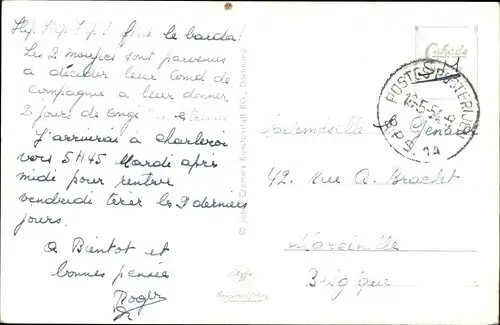 Hip. Hip. Hip! fini le barda!
Les 2 moufics sont parvenus
à décider leur Cond de
compagne a leur donner
2 jours de congé
J'arriverai à charleroi
vers 5H45 Mardi après
midi pour rentrer
vendredi tirer les 2 derniers
jours.
A Bientot et
bonnes pensées
Roger
Cramers Kunstanstalt KG., Dortmund
Agfa
Cekade
POSTES-POSTERIJEN
16-5-54
B.P.S. 14
Mademoiselle Genard
42. Rue A. Brachet
Marcinelle
Belgique